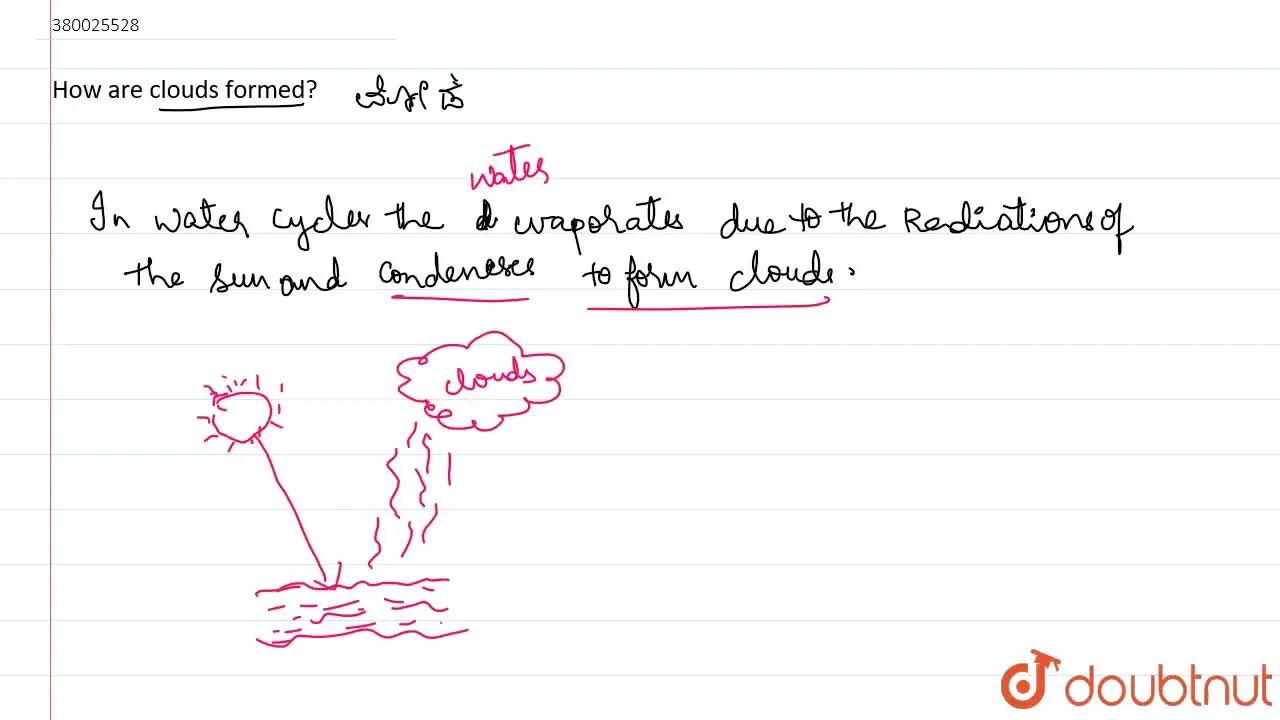 380025528
How are clouds formed?
water
In water cycle the evaporates due to the Radiations of
the sun and condenses to form clouds.
clouds
doubtnut